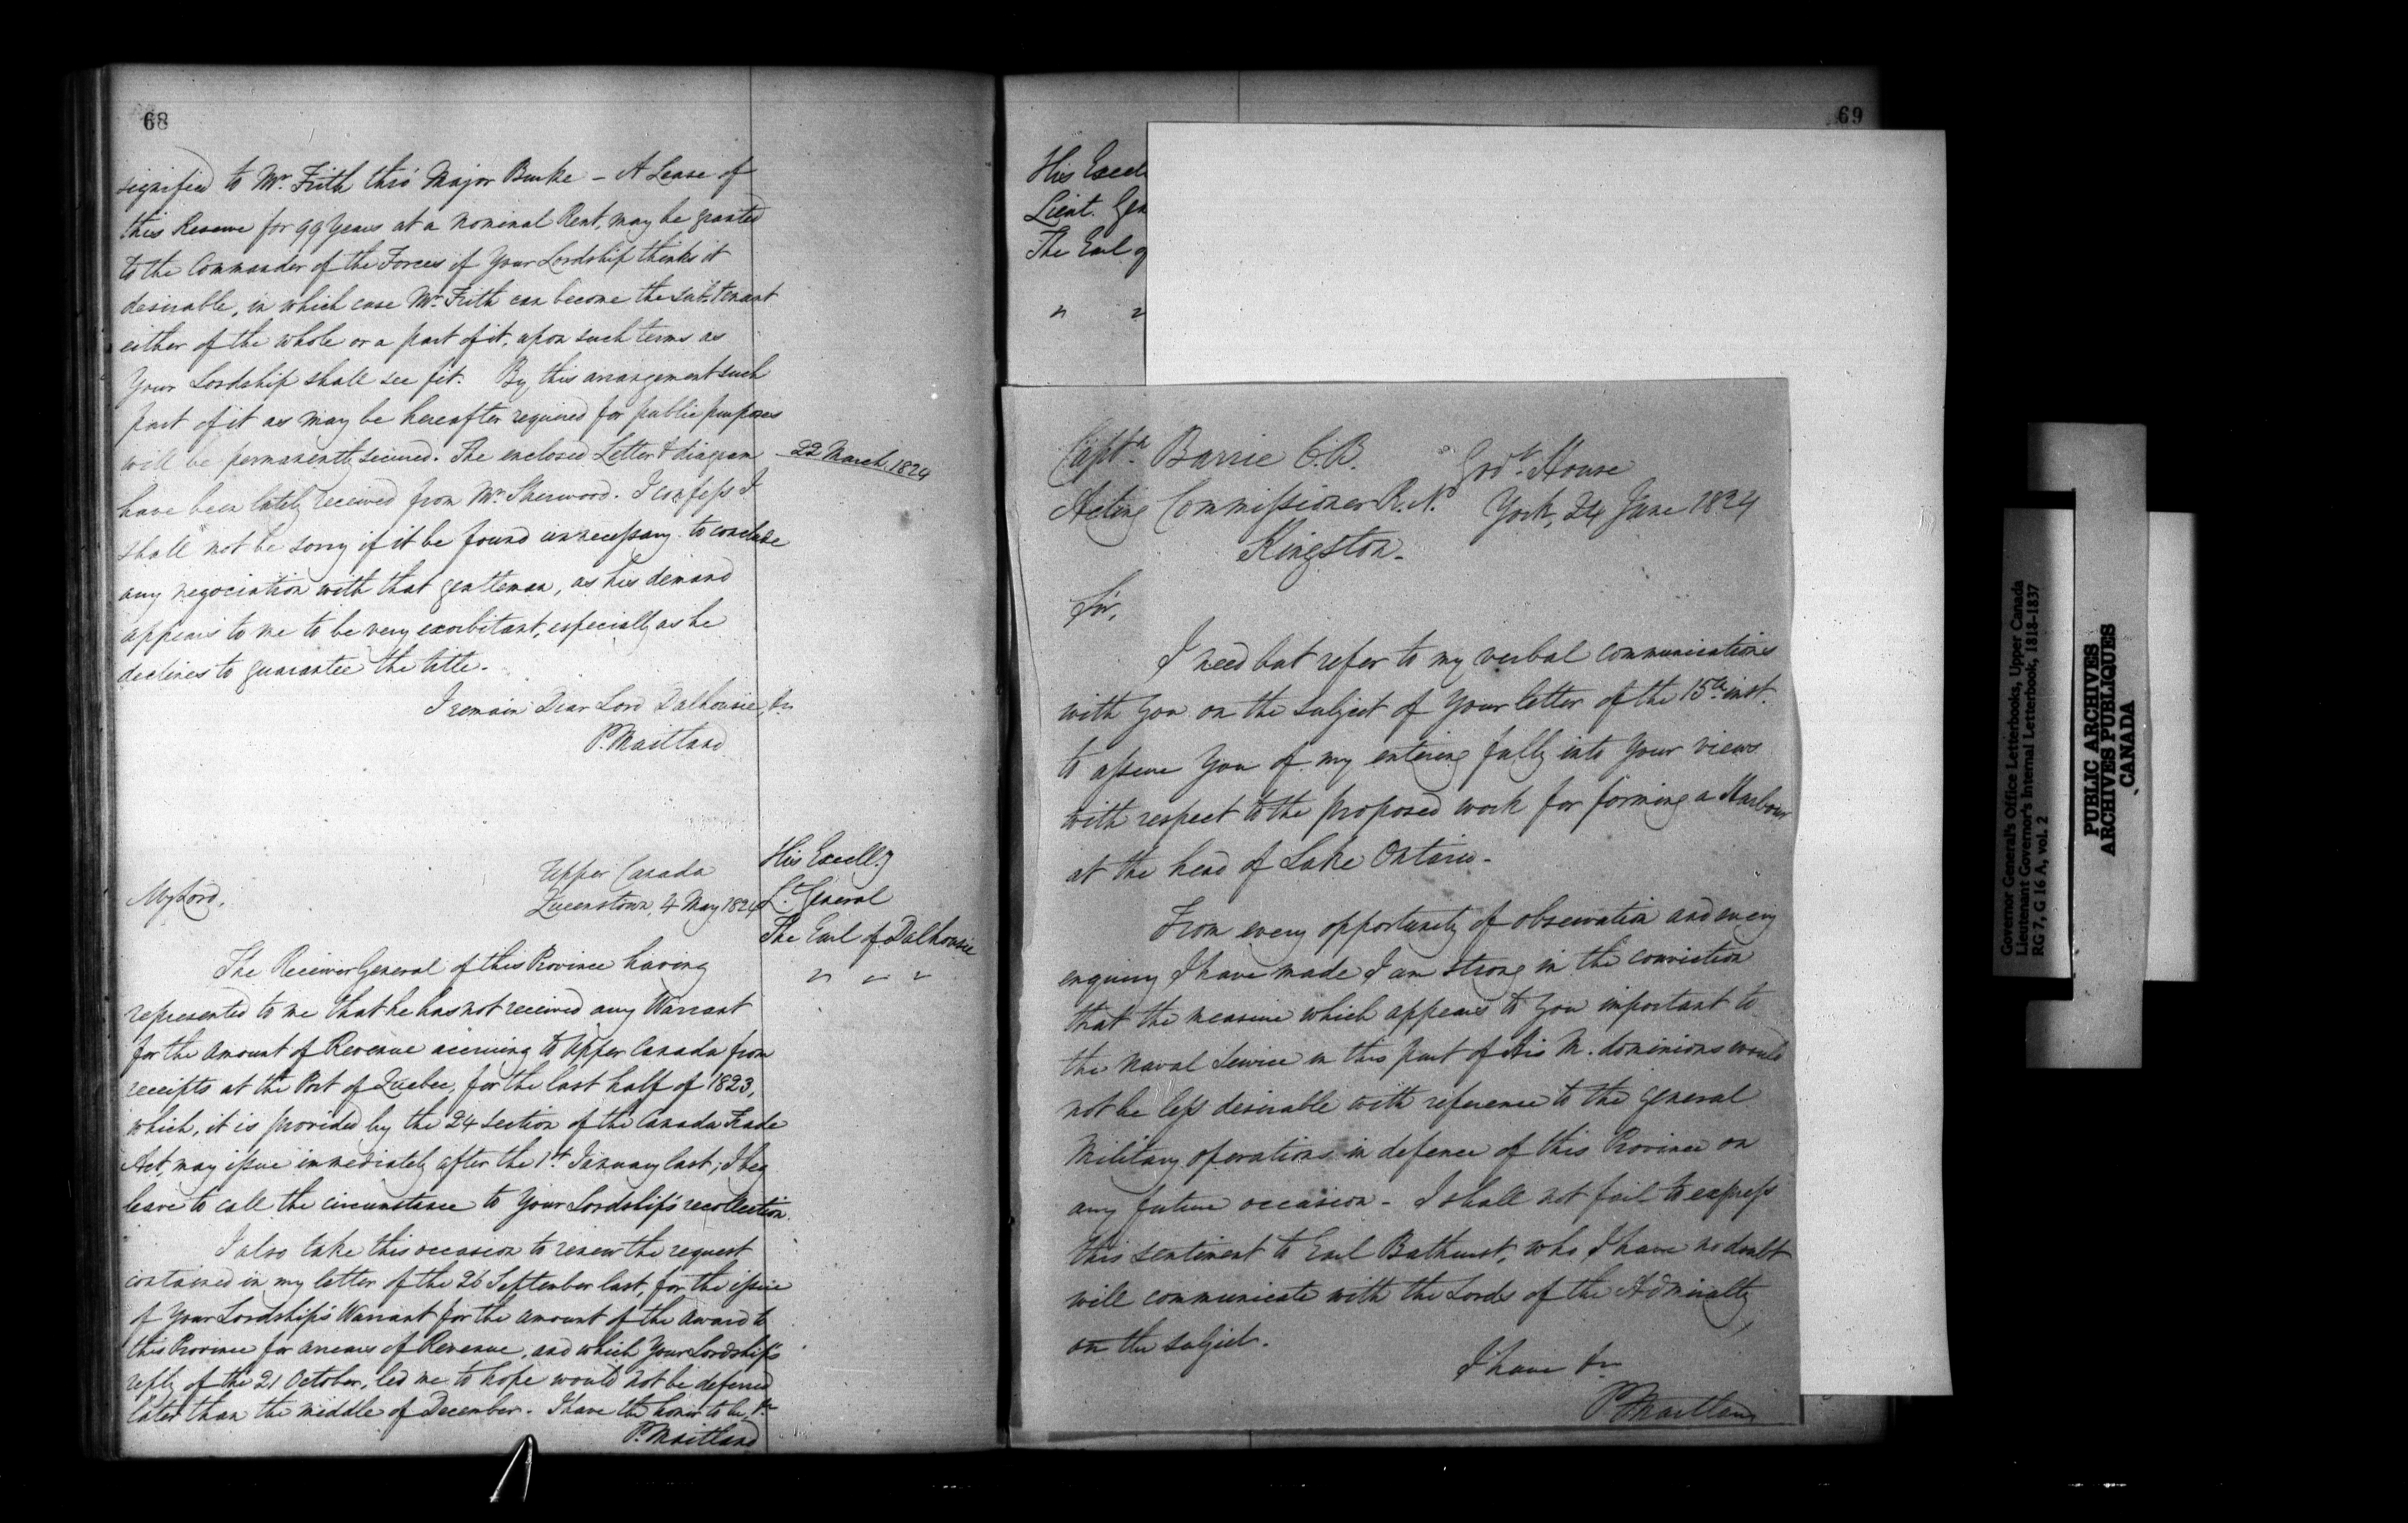 68
signified to Mr. Frith thro' Major Burke - A Lease of
this Reserve for 99 years at a nominal Rent, may be granted
to the Commander of the Forces if Your Lordship thinks it
desirable, in which case Mr. Frith can become the sub-tenant
either of the whole or a part of it, upon such terms as
Your Lordship shall see fit. By this arrangement such
part of it as may be hereafter required for public purposes
will be permanently secured. The enclosed Letter & diagram
22 March, 1824
have been lately received from Mr. Sherwood. I confess I
shall not be sorry if it be found unnecessary to conclude
any negociation with that gentleman, as his demand
appears to me to be very exorbitant, especially as he
declines to guarantee the title.
I remain Dear Lord Dalhousie, &c
P. Maitland
Upper Canada
My Lord, Queenstown, 4 May 1824
His Excelly
Lt. General
The Earl of Dalhousie
" " "
The Receiver General of this Province having
represented to me that he has not received any Warrant
for the amount of Revenue accruing to Upper Canada from
receipts at the Port of Quebec, for the last half of 1823,
which, it is provided by the 24 section of the Canada Trade
Act, may issue immediately after the 1st January last; I beg
leave to call the circumstance to Your Lordship's recollection.
I also take this occasion to renew the request
contained in my letter of the 26 September last, for the issue
of Your Lordship's Warrant for the amount of the award to
this Province for arrears of Revenue, and which Your Lordship's
reply of the 21 October, led me to hope would not be deferred
later than the middle of December. I have the honor to be, &c
P. Maitland
69
His Excel
Lieut. Gen
The Earl o
" "
Captn. Barrie C.B. Govt. House
Acting Commissioner R.N. York, 24 June 1824
Kingston.
Sir,
I need but refer to my verbal communications
with You on the subject of Your letter of the 15th inst.
to assure You of my entering fully into Your views
with respect to the proposed work for forming a Harbour
at the head of Lake Ontario.
From every opportunity of observation and every
enquiry I have made I am strong in the conviction
that the measure which appears to You important to
the naval service in this part of His M. dominions would
not be less desirable with reference to the general
Military operations in defence of this Province on
any future occasion - I shall not fail to express
this sentiment to Earl Bathurst, who I have no doubt
will communicate with the Lords of the Admiralty
on the subject.
I have &c
P. Maitland
Governor General's Office Letterbooks, Upper Canada
Lieutenant Governor's Internal Letterbook, 1818-1837
RG 7, G 16 A, vol. 2
PUBLIC ARCHIVES
ARCHIVES PUBLIQUES
CANADA